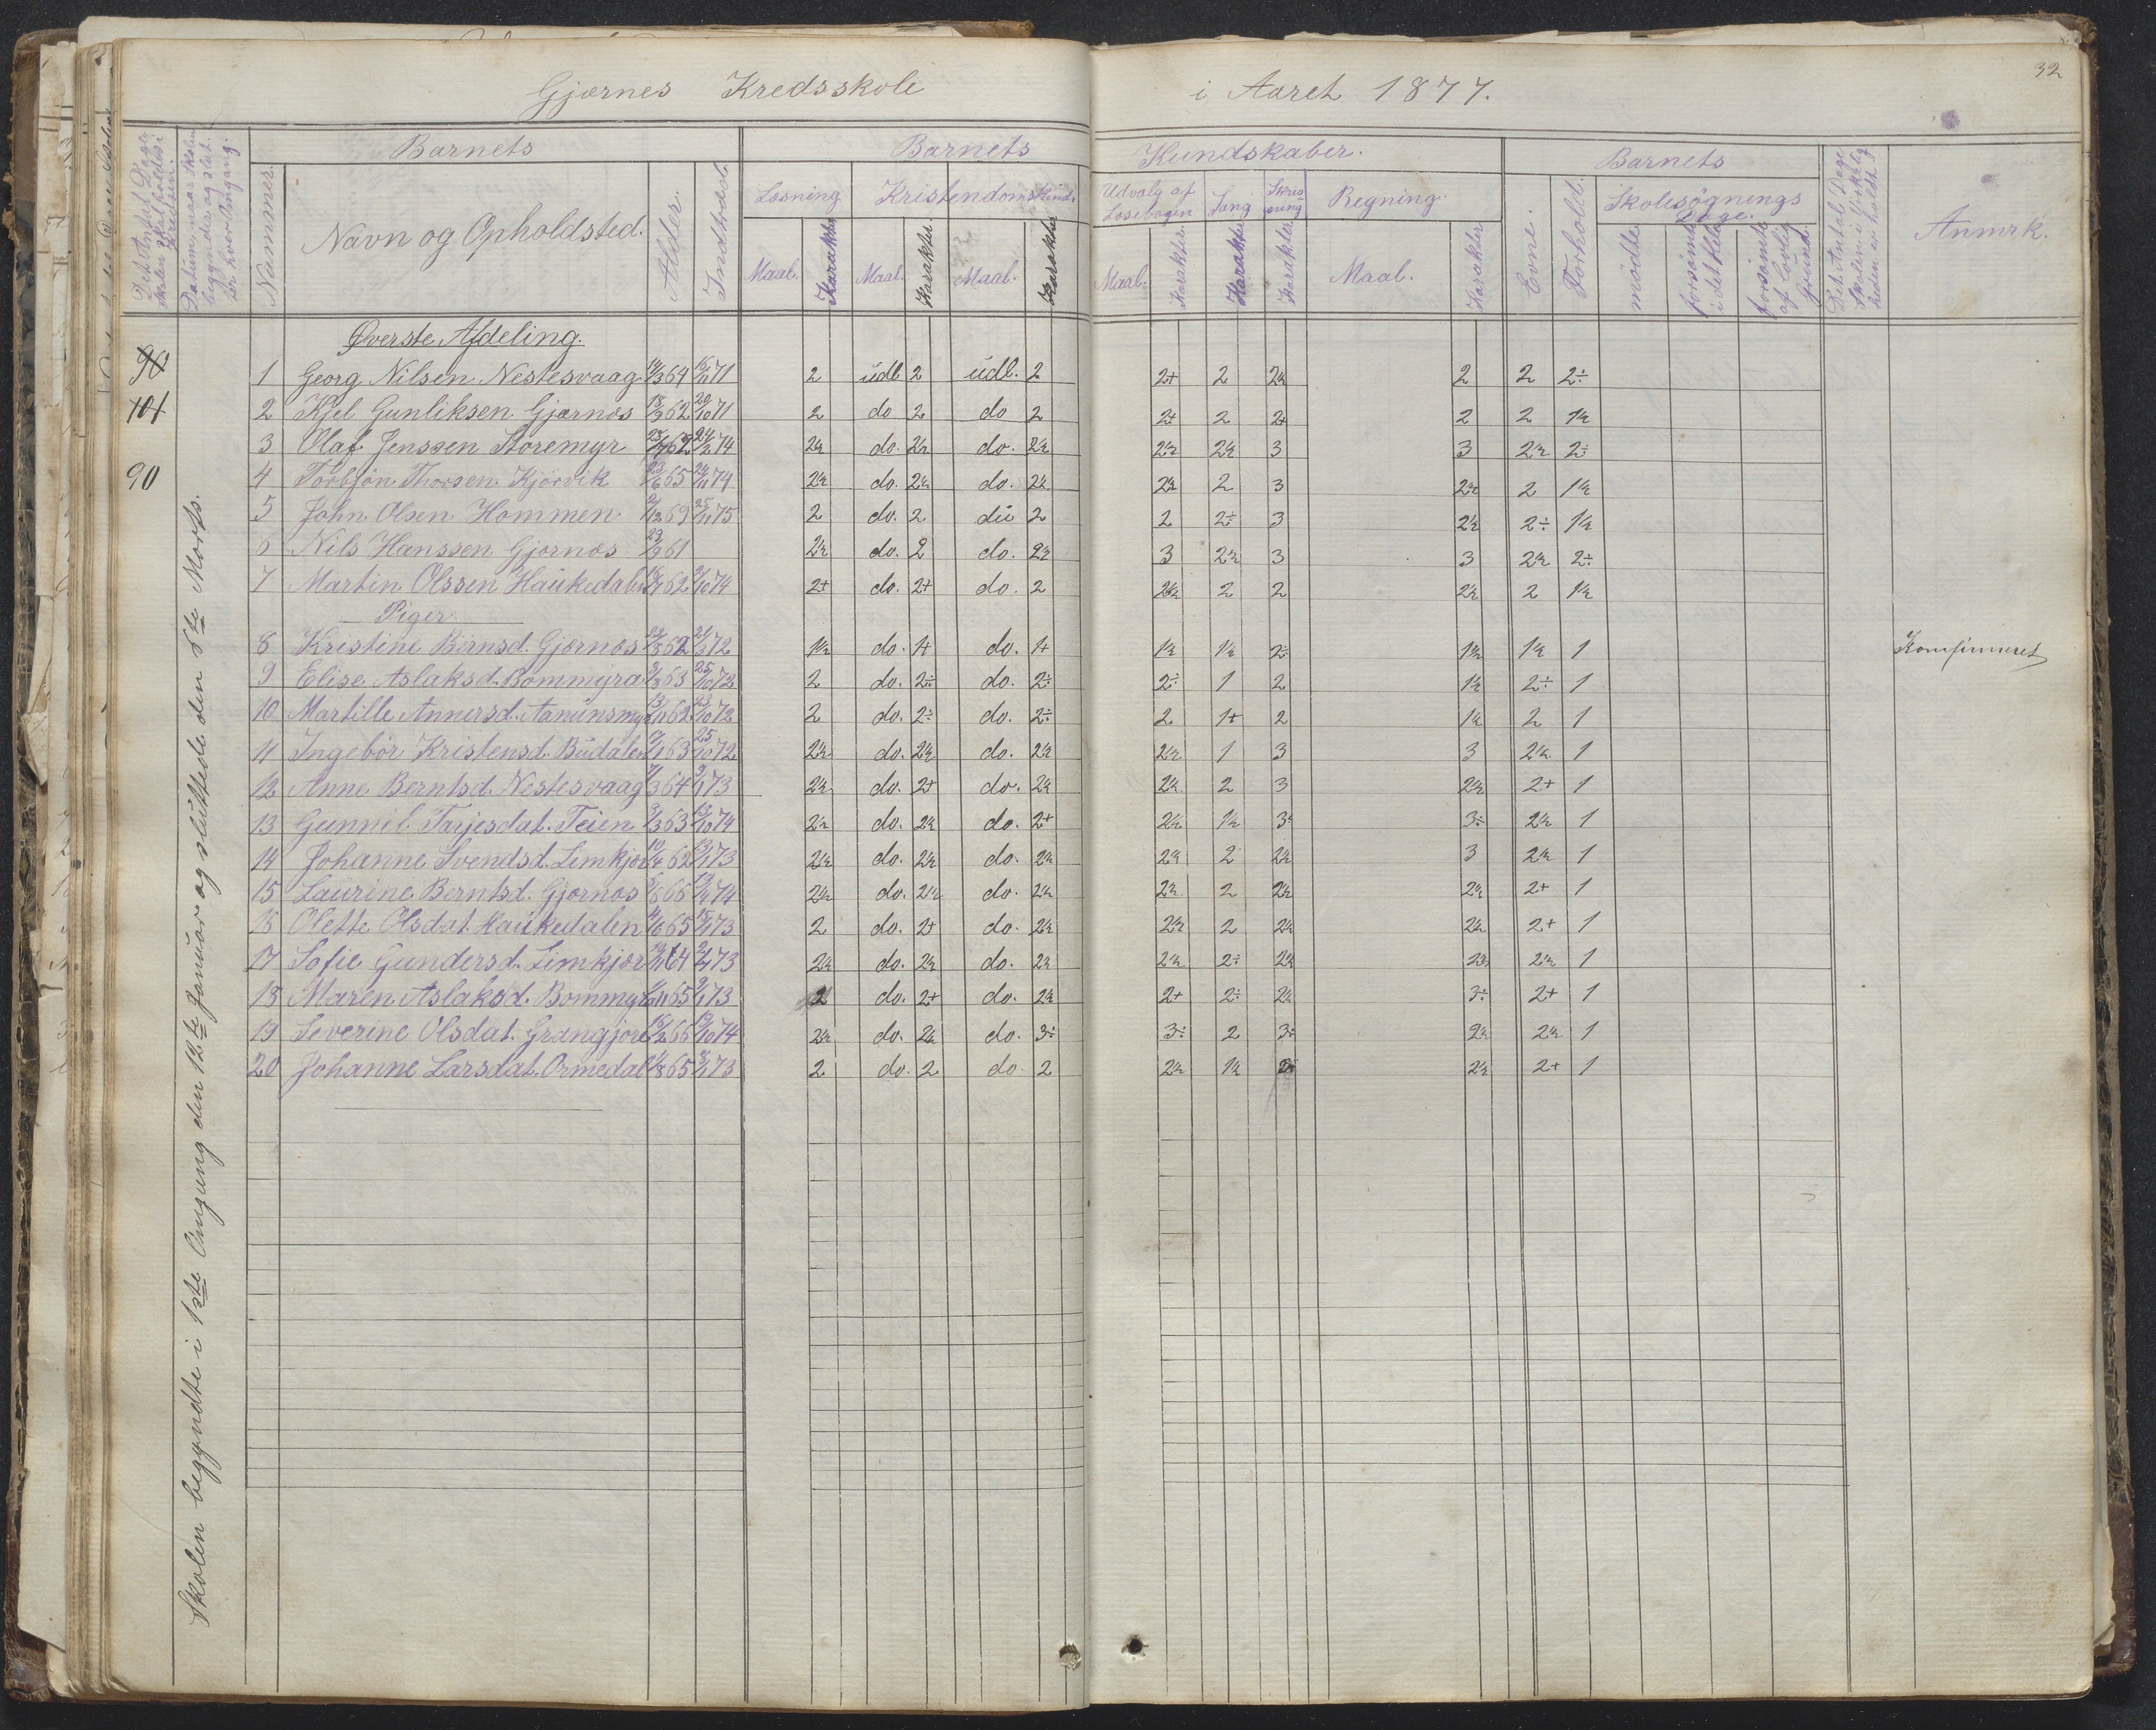 32
Gjærnes Kredsskole i Aaret 1877.
Det Antal Dage Skolen skal holdes i Kredsen.
Datum, naar Skolen begyndes og slut- tes hver Omgang.
Barnets
Nummer.
Navn og Opholdsted.
Alder.
Indtrædst.
Barnets Kundskaber.
Læsning
Maal. Karakter
Kristendomskund.
Maal. Karakter Maal. Karakter
Udvalg af Læsebogen
Maal. Karakter.
Sang
Karakter
Skriv- ning
Karakter.
Regning.
Maal. Karakter
Barnets
Evne. Forhold.
Skolesøgnings Dage.
mødte forsømte i det Hele forsømte af lovlig Grund.
Det Antal Dage Skolen i Virkelig- heden er holdt.
Anmrk.
90
101
90
Skolen begyndte i 1ste Omgang den 12te Januar og sluttede den 8te Marts.
Øverste Afdeling.
1 Georg Nilsen Nestesvaag 64 71 2 udl 2 udl. 2 2+ 2 2½ 2 2 2÷
2 Kjel Gunliksen Gjærnes 62 71 2 do 2 do 2 2+ 2 2+ 2 2 1½
3 Olaf Jenssen Storemyr 62 74 2½ do. 2½ do. 2½ 2½ 2½ 3 3 2½ 2÷
4 Torbjøn Thorsen Kjørvik 65 74 2½ do. 2½ do. 2½ 2½ 2 3 2½ 2 1½
5 John Olsen Hommen 69 75 2 do. 2 du 2 2 2÷ 3 2½ 2÷ 1½
6 Nils Hanssen Gjærnes 61 2½ do. 2 do. 2½ 3 2½ 3 3 2½ 2÷
7 Martin Olssen Haukedalen 62 74 2+ do. 2+ do. 2 2½ 2 2 2½ 2 1½
Piger.
8 Kristine Børnsd. Gjærnes 62 72 1½ do. 1+ do. 1+ 1½ 1½ 2÷ 1½ 1½ 1 Komfirmeret
9 Elise Aslaksd. Bommyra 63 72 2 do. 2÷ do. 2÷ 2÷ 1 2 1½ 2÷ 1
10 Martille Annersd. Aanunsmyr 62 72 2 do. 2÷ do. 2÷ 2 1+ 2 1½ 2 1
11 Ingebør Kristensd. Budalen 63 72 2½ do. 2½ do. 2½ 2½ 1 3 3 2½ 1
12 Anne Berntsd. Nestesvaag 64 73 2½ do. 2+ do. 2½ 2½ 2 3 2½ 2+ 1
13 Gunvil Tarjesdat. Teien 63 74 2½ do. 2½ do. 2+ 2½ 1½ 3÷ 3÷ 2½ 1
14 Johanne Svendsd. Limkjær 62 73 2½ do. 2½ do. 2½ 2½ 2 2½ 3 2½ 1
15 Laurine Berntsd. Gjærnes 66 74 2½ do. 2½ do. 2½ 2½ 2 2½ 2½ 2+ 1
16 Olette Olsdat. Haukedalen 65 73 2 do. 2+ do. 2½ 2½ 2 2½ 2½ 2+ 1
17 Sofie Gundersd. Limkjær 64 73 2½ do. 2½ do. 2½ 2½ 2÷ 2½ 2½ 2½ 1
18 Maren Aslaksd. Bommyra 65 73 2 do. 2+ do. 2½ 2+ 2÷ 2½ 3÷ 2+ 1
19 Severine Olsdat. Grangjore 66 74 2½ do. 2½ do. 3÷ 3÷ 2 3÷ 2½ 2½ 1
20 Johanne Larsdat. Ormedal 65 73 2 do. 2 do. 2 2½ 1½ 2½ 2+ 1